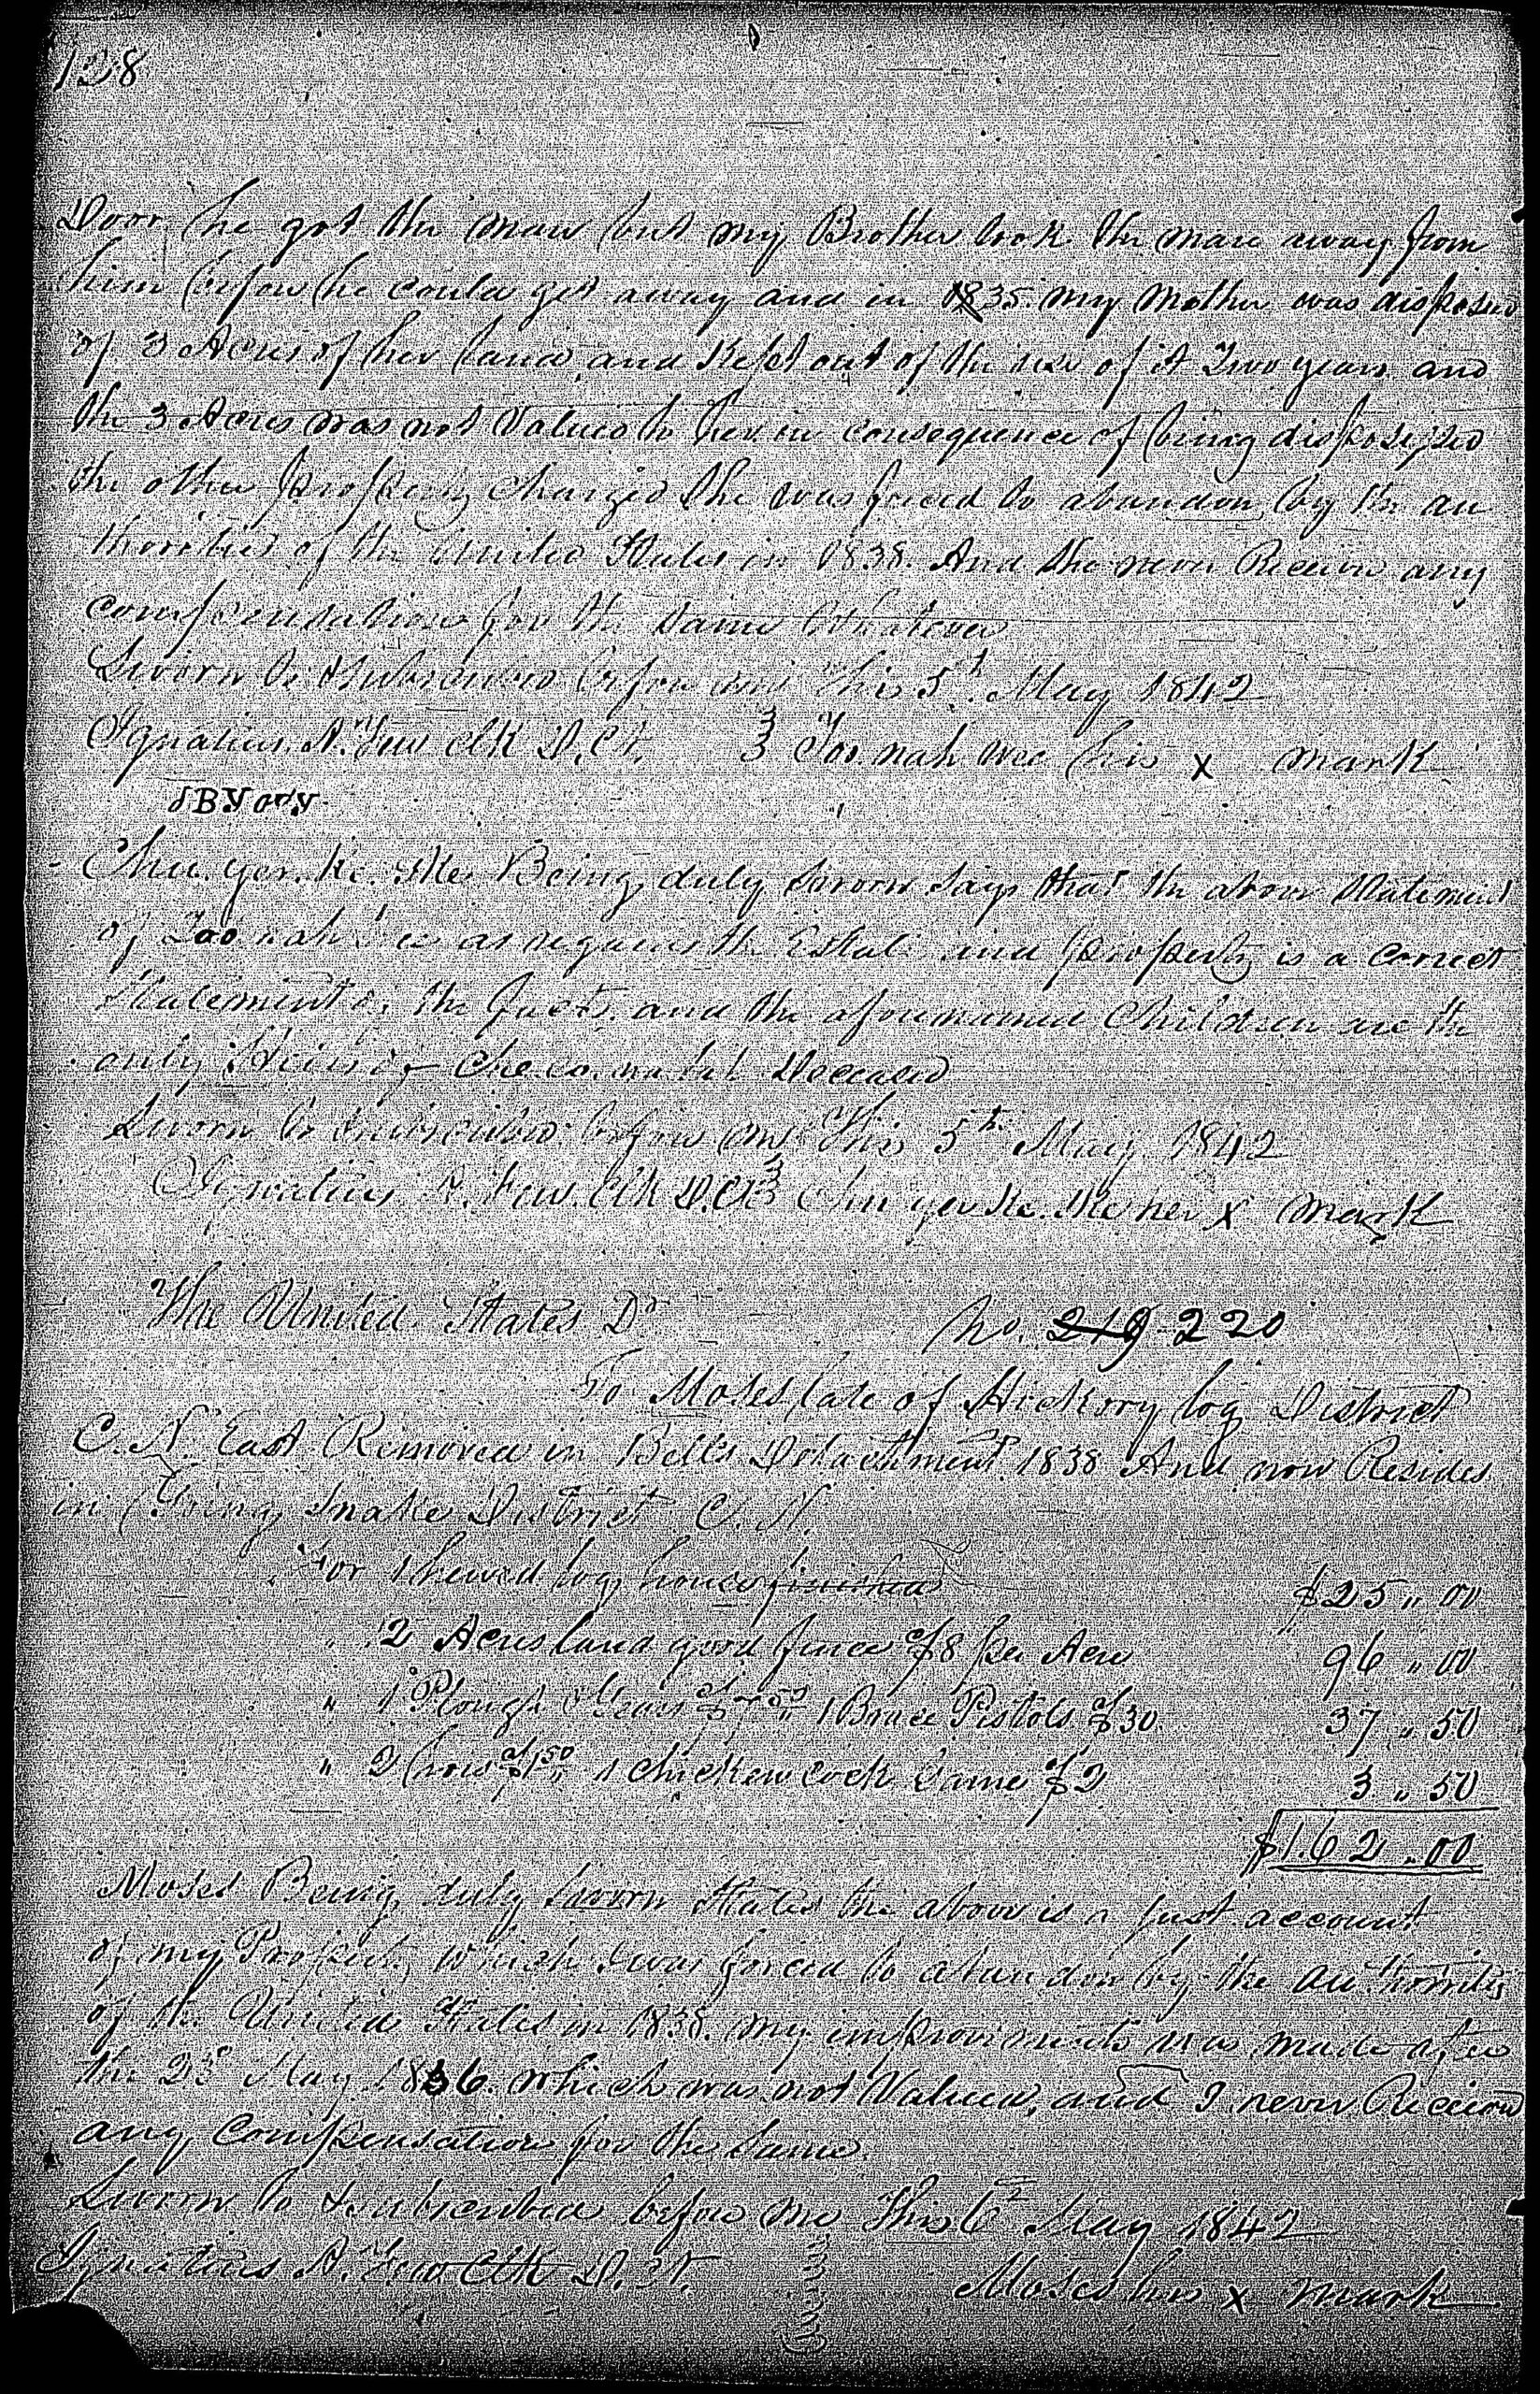 128
Door he got the mare but my Brother took the mare away from
him before he could get away and in 1835 my Mother was dispossed
of 3 Acres of her land, and Kept out of the use of it Two years and
the 3 Acres was not Valued to her in consequence of being dispossessed
the other property charged she was forced to abandon by the au
thorities of the United States in 1838. And she never Receive any
compensation for the same Whatever
Sworn to & subscribed before me This 5th May 1842
Ignatius A. Few Clk D. Ct. Too. nah wee his x mark
Chu. yer. ke. ske Being duly sworn says that the above Statement
of Too nah as regards the Estate and property is a correct
Statement of the facts and the aforenamed Children are the
only Heirs of Deceased
Sworn to & subscribed before me This 5th May 1842
Ignatius A. Few Clk D. Ct Chu yer ke. ske her x mark
The United States Dr No. 219 220
To Moses late of Hickory log District
C. N. East Removed in Bells Detachment 1838 And now Resides
in Going Snake District C. N.
For 1 hewed log house finished $25 " 00
" 12 Acres land good fence $8 per Acre 96 " 00
" 1 Plough & Gears $7 50 " 1 Brace Pistols $30 37 " 50
" 2 hoes $1 50 " 1 chicken cock Game $2 3 " 50
$162 " 00
Moses Being duly sworn States the above is a just account
of my Property which I was forced to abandon by the authorities
of the United States in 1838. my improvements was made after
the 23d May 1836. which was not Valued, and I never Received
any Compensation for the same.
Sworn to & subscribed before me This 6th May 1842
Ignatius A. Few Clk D. Ct. Moses his x mark